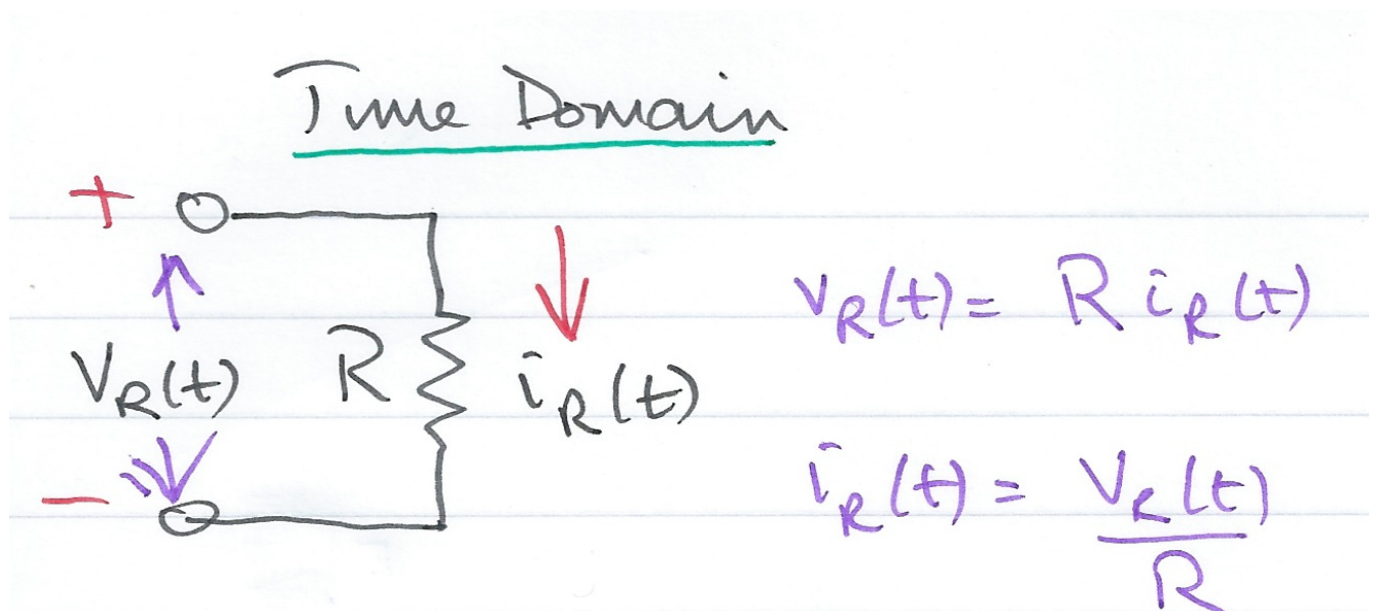 Time Domain
+
v_R(t) R i_R(t)
−
v_R(t) = R i_R(t)
i_R(t) = v_R(t) / R